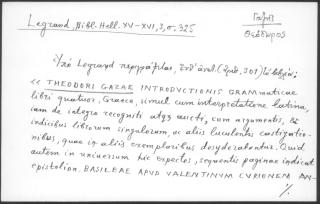 Legrand, Bibl. Hell. XV-XVI, 3, σ. 325
Γαζῆ
Θεόδωρος
Ὑπό Legrand περιγράφεται, ἐνθ' ἀνωτ. (ἀριθ. 301) τὸ βιβλίον:
« THEODORI GAZAE INTRODUCTIONIS GRAMmaticae
libri quatuor, Graece, simul cum interpretatione latina,
iam de integro recogniti atq3 aucti, cum argumentis, &
indicibus librorum singulorum, ac aliis luculentis castigatio-
nibus, quae in aliis exemplaribus desyderabantur. Quid
autem in universum hic expectes, sequentis paginae indicat
epistolion. BASILEAE APUD VALENTINUM CURIONEM AN-
·/.